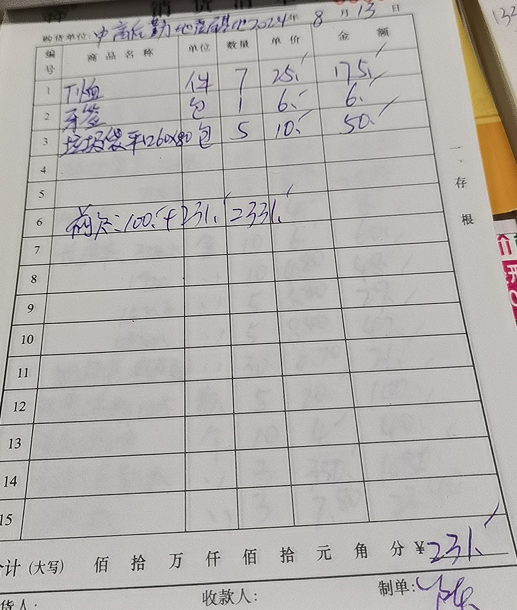 销货清单
购货单位: 中商后勤 2024年 8月13日
编号 商品名称 单位 数量 单价 金额
1 件 7 25. 175.
2 牙签 包 1 6. 6.
3 垃圾袋 平1260x80 包 5 10. 50.
4
5
6 前欠: 100. + 231. = 331.
7
8
9
10
11
12
13
14
15
合计 (大写) 佰 拾 万 仟 佰 拾 元 角 分 ¥231.
货人: 收款人: 制单:
一、存根